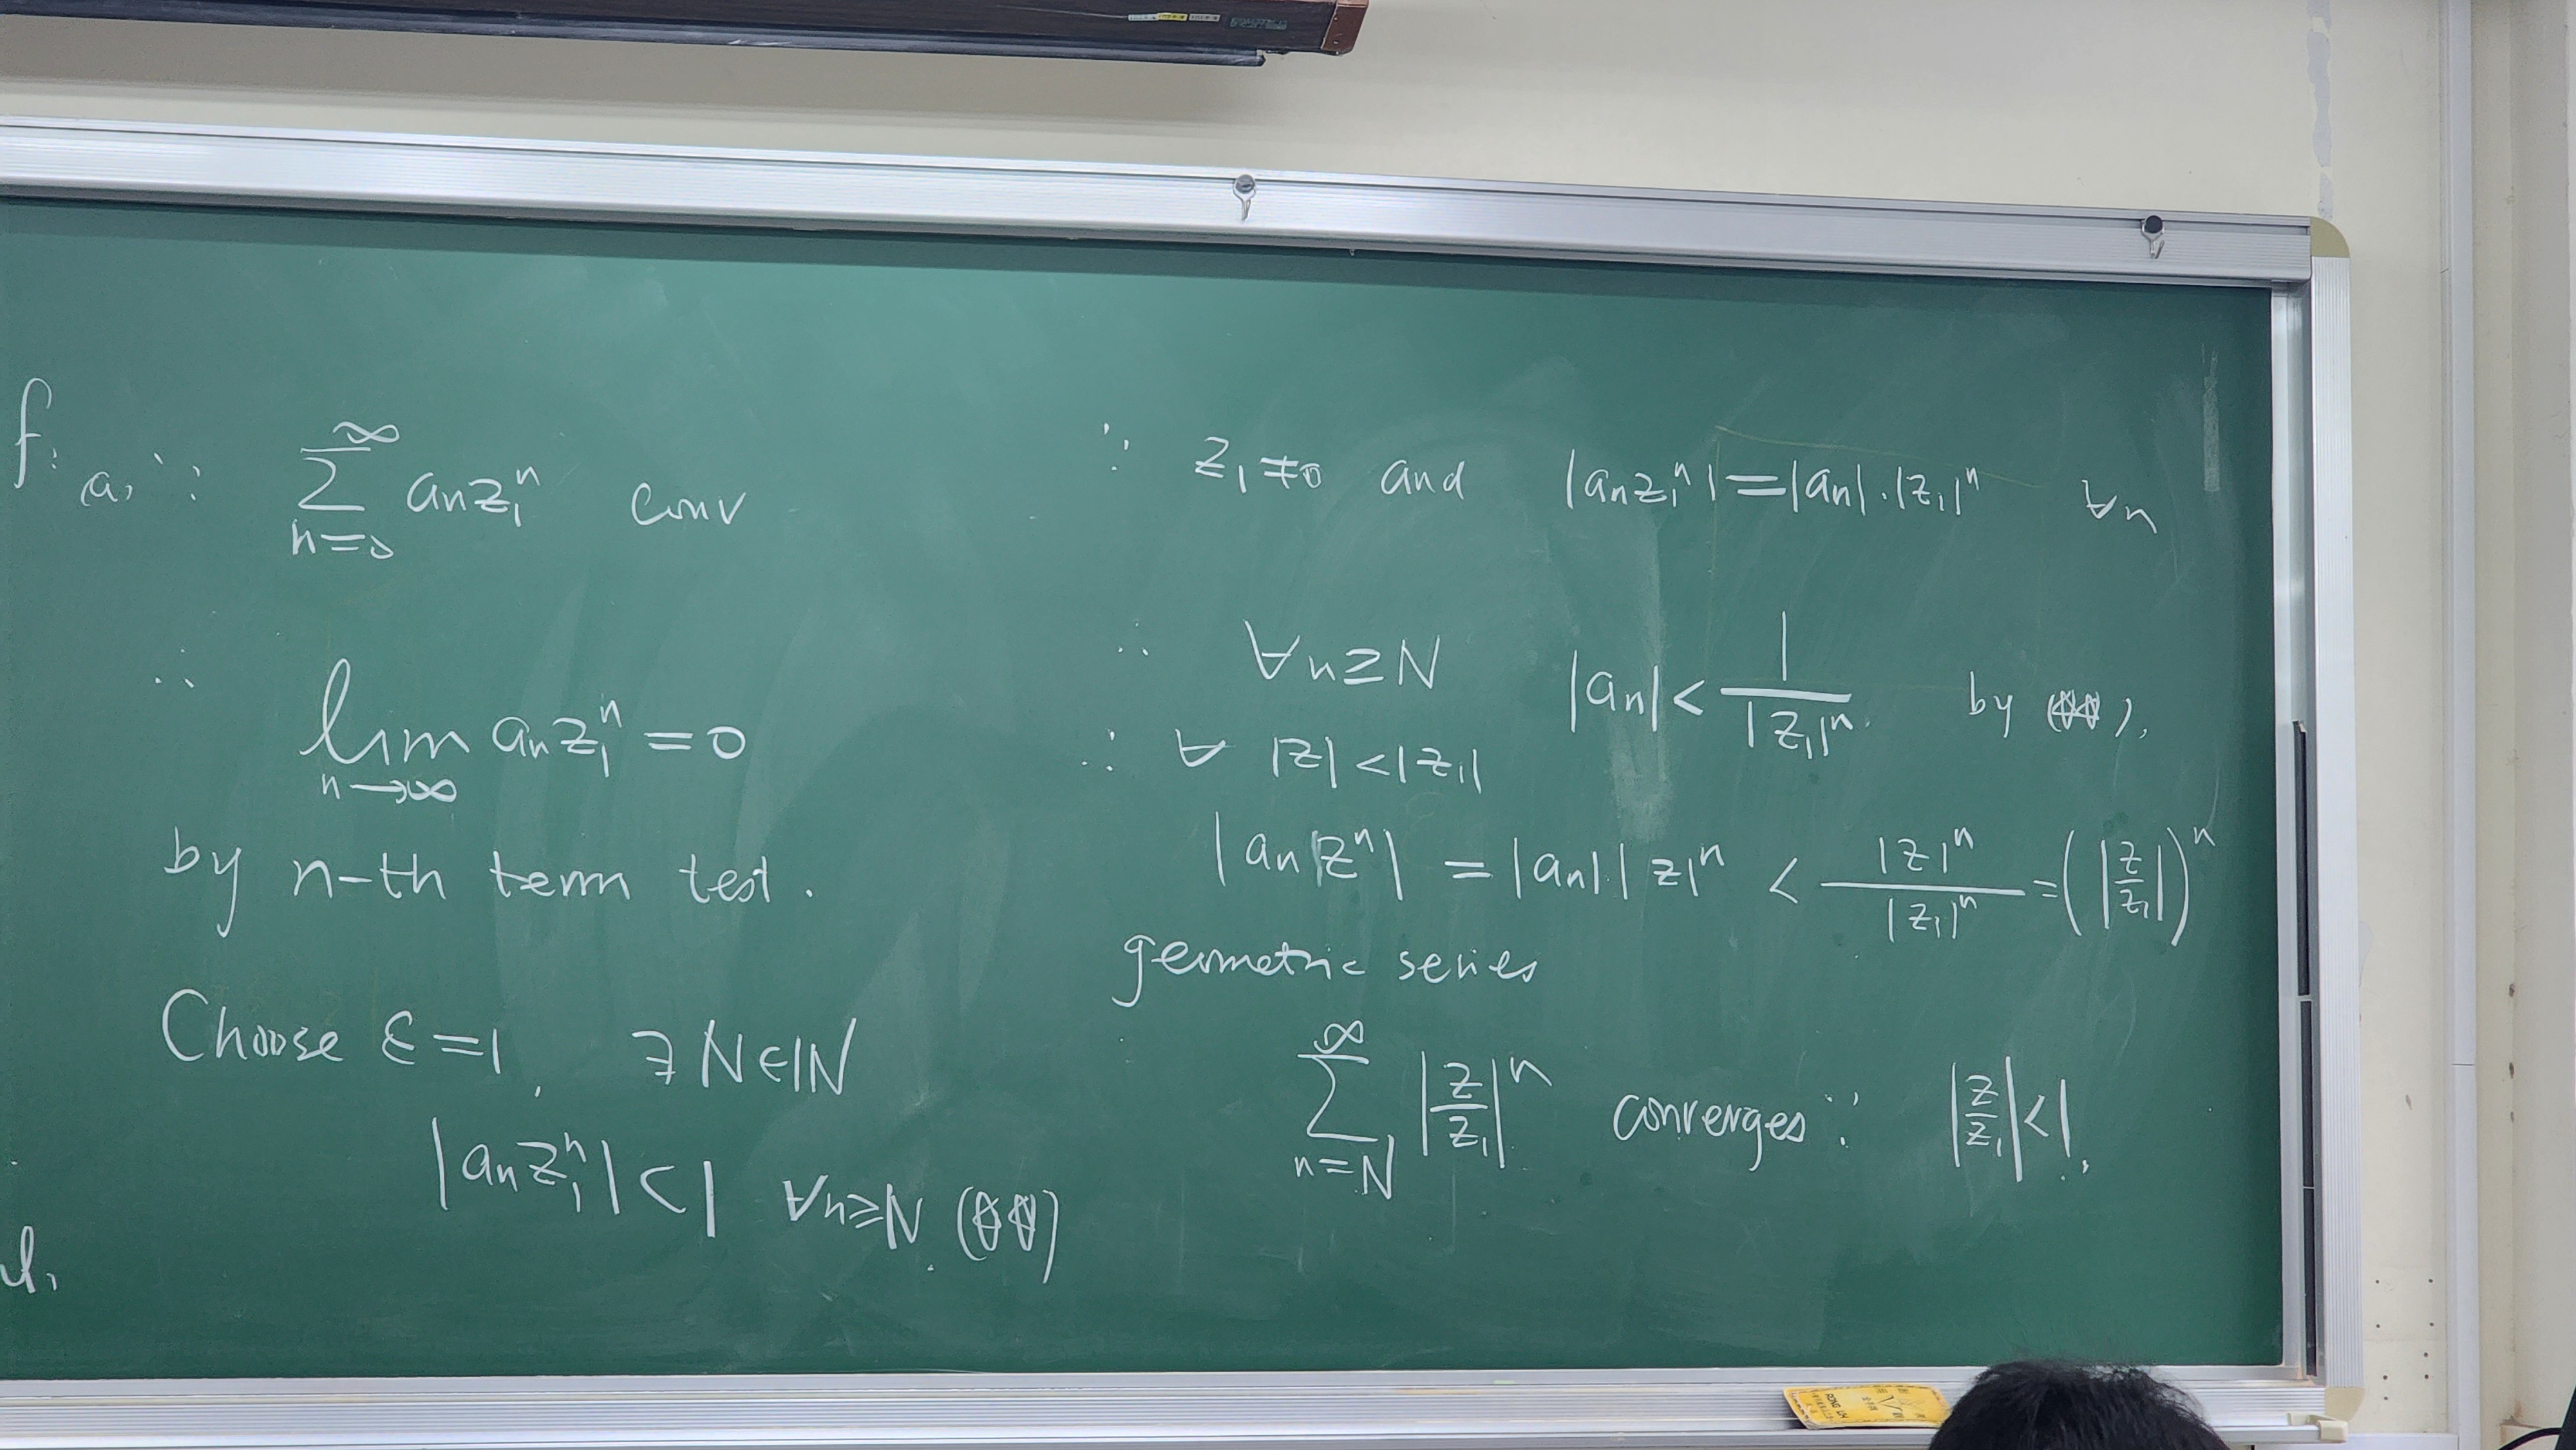 f: (a) ∵ ∑_{n=0}^{∞} a_n z_1^n conv
∴ lim_{n→∞} a_n z_1^n = 0
by n-th term test.
Choose ε = 1, ∃ N ∈ ℕ
|a_n z_1^n| < 1 ∀n ≥ N (**)
∵ z_1 ≠ 0 and |a_n z_1^n| = |a_n|·|z_1|^n ∀n
∴ ∀n ≥ N |a_n| < 1/|z_1|^n by (**),
∴ ∀ |z| < |z_1|
|a_n z^n| = |a_n||z|^n < |z|^n/|z_1|^n = (|z/z_1|)^n
geometric series
∑_{n=N}^{∞} |z/z_1|^n converges ∵ |z/z_1| < 1.